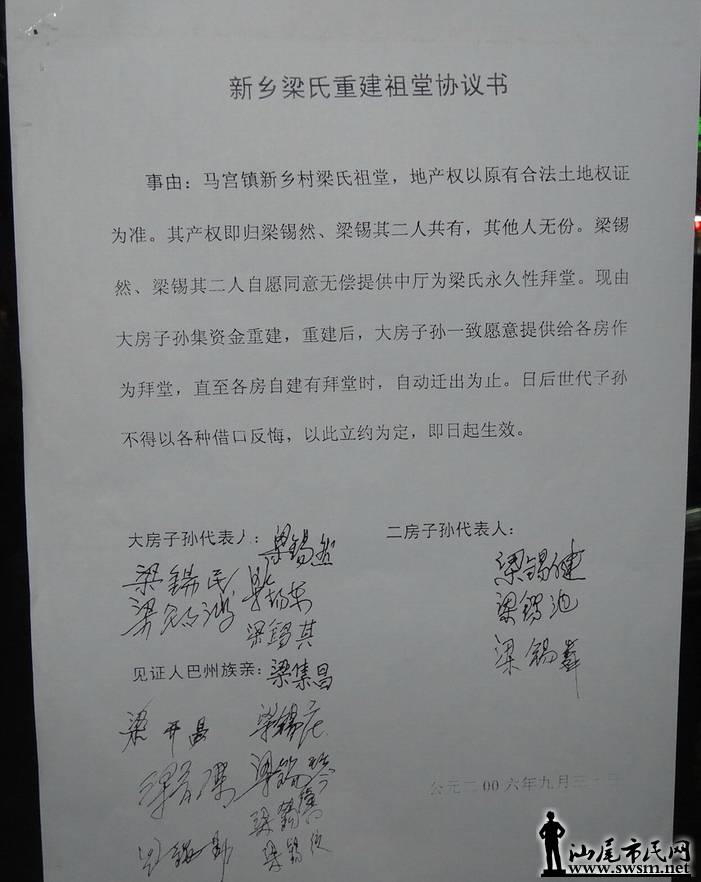 新乡梁氏重建祖堂协议书
事由：马宫镇新乡村梁氏祖堂，地产权以原有合法土地权证
为准。其产权即归梁锡然、梁锡其二人共有，其他人无份。梁锡
然、梁锡其二人自愿同意无偿提供中厅为梁氏永久性拜堂。现由
大房子孙集资金重建，重建后，大房子孙一致愿意提供给各房作
为拜堂，直至各房自建有拜堂时，自动迁出为止。日后世代子孙
不得以各种借口反悔，以此立约为定，即日起生效。
大房子孙代表人：梁锡然
二房子孙代表人：
梁锡民
梁锡健
梁锡池
梁锡其
梁锡
见证人巴州族亲：梁集昌
梁开昌
梁锡
梁锡
公元二00六年九月三
汕尾市民网
www.swsm.net